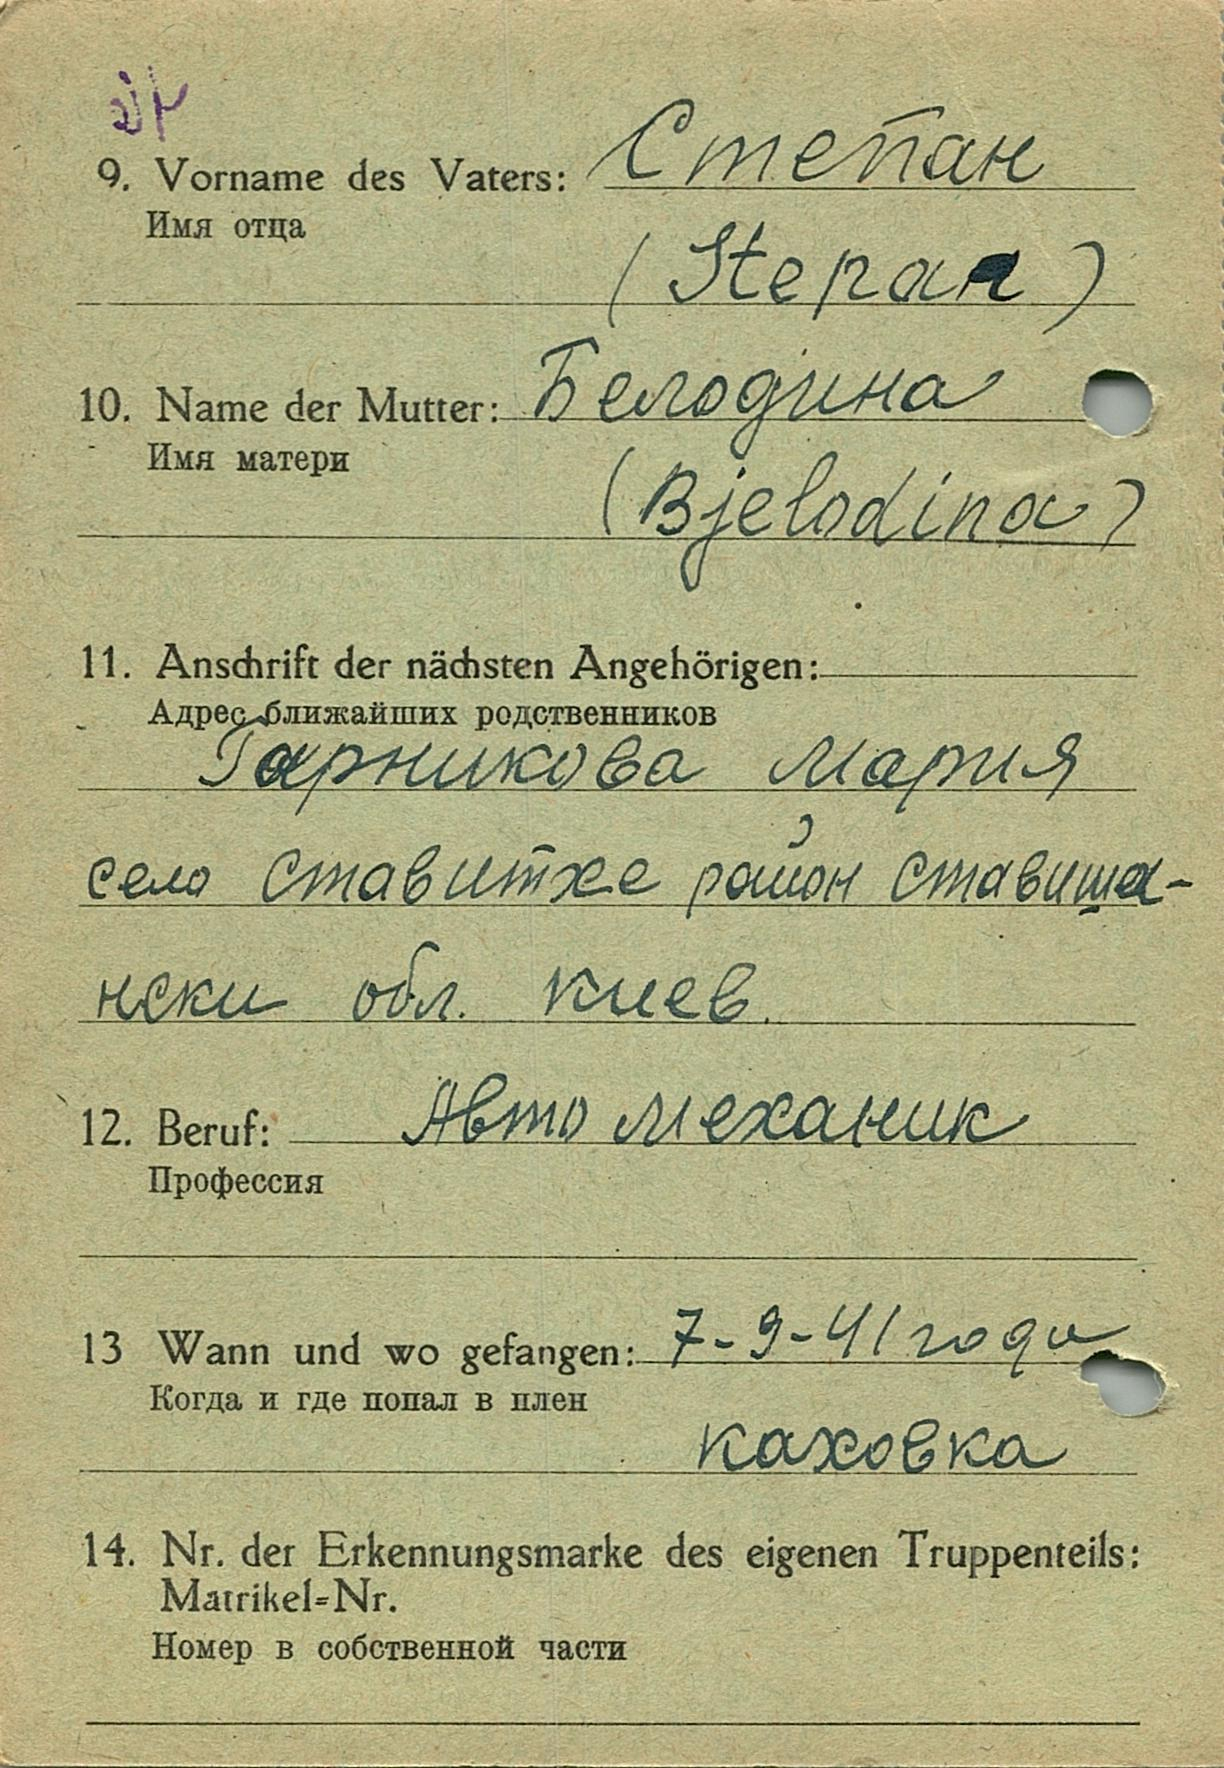 9. Vorname des Vaters: Степан
Имя отца
(Stepan)
10. Name der Mutter: Белодина
Имя матери
(Bjelodina)
11. Anschrift der nächsten Angehörigen:
Адрес ближайших родственников
Гарникова Мария
село ставитхе район ставища-
нски обл. Киев.
12. Beruf: Авто механик
Профессия
13 Wann und wo gefangen: 7-9-41 года
Когда и где попал в плен
Каховка
14. Nr. der Erkennungsmarke des eigenen Truppenteils:
Matrikel=Nr.
Номер в собственной части